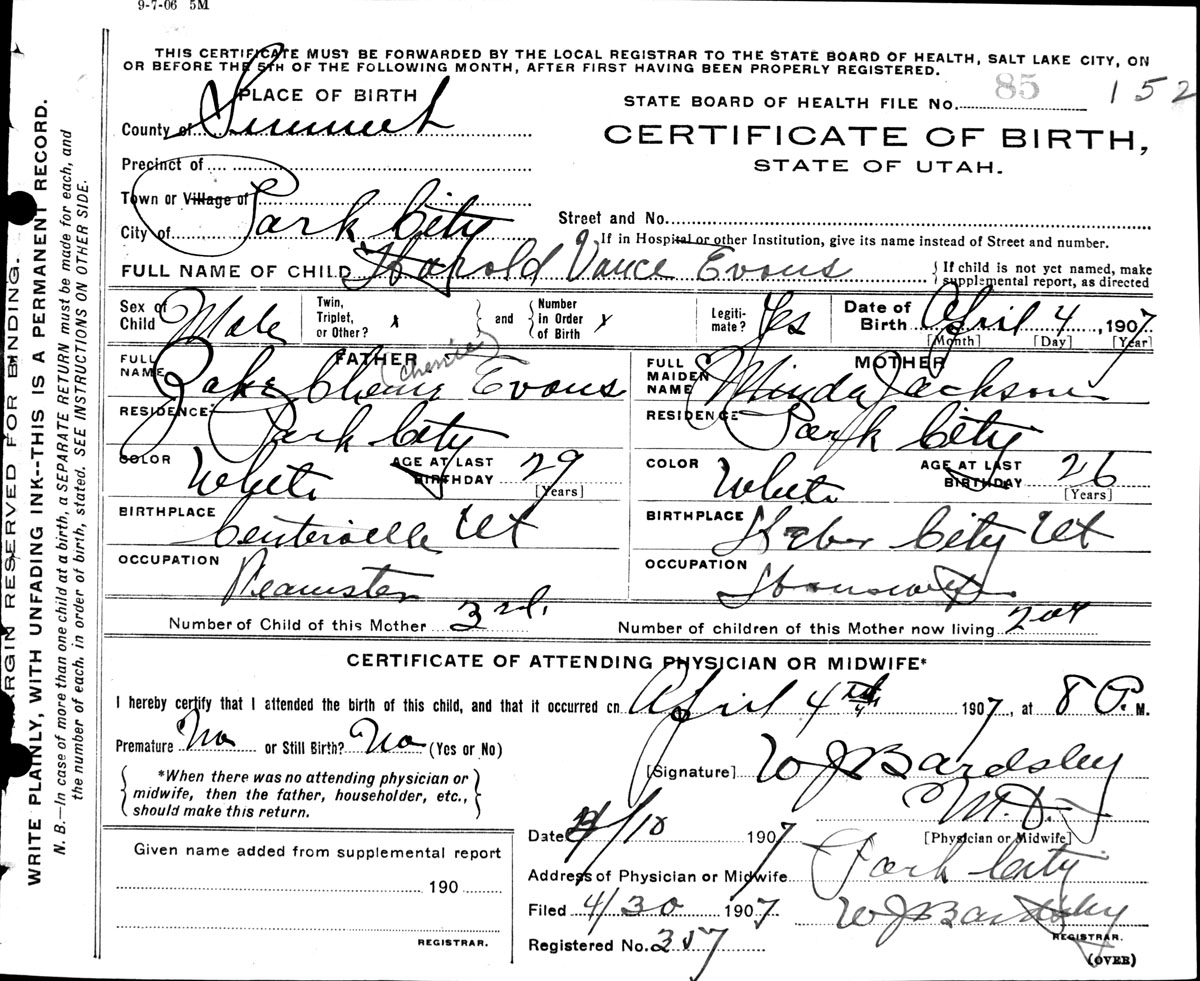 9-7-06 5M
THIS CERTIFICATE MUST BE FORWARDED BY THE LOCAL REGISTRAR TO THE STATE BOARD OF HEALTH, SALT LAKE CITY, ON
OR BEFORE THE 5TH OF THE FOLLOWING MONTH, AFTER FIRST HAVING BEEN PROPERLY REGISTERED.
PLACE OF BIRTH
STATE BOARD OF HEALTH FILE No. 85 152
County of Summit
CERTIFICATE OF BIRTH,
STATE OF UTAH.
Precinct of
Town or Village of
City of Park City
Street and No.
If in Hospital or other Institution, give its name instead of Street and number.
FULL NAME OF CHILD Harold Vance Evans
{ If child is not yet named, make
supplemental report, as directed
Sex of Child Male
Twin, Triplet, or Other? x
and
Number in Order of Birth x
Legiti-mate? Yes
Date of Birth April 4, 1907
[Month] [Day] [Year]
FATHER
FULL NAME Evans
MOTHER
FULL MAIDEN NAME Minda Jackson
RESIDENCE Park City
RESIDENCE Park City
COLOR White
AGE AT LAST BIRTHDAY 29
[Years]
COLOR White
AGE AT LAST BIRTHDAY 26
[Years]
BIRTHPLACE Centerville Ut
BIRTHPLACE Heber City Ut
OCCUPATION Teamster
OCCUPATION Housewife
Number of Child of this Mother 3rd.
Number of children of this Mother now living 2
CERTIFICATE OF ATTENDING PHYSICIAN OR MIDWIFE*
I hereby certify that I attended the birth of this child, and that it occurred on April 4th 1907, at 8 P. M.
Premature No or Still Birth? No (Yes or No)
*When there was no attending physician or
midwife, then the father, householder, etc.,
should make this return.
[Signature] W J Bardsley
M.D.
[Physician or Midwife]
Date 4/10 1907
Address of Physician or Midwife Park City
Filed 4/30 1907 W J Bardsley
REGISTRAR.
Registered No. 357
(OVER)
Given name added from supplemental report
190
REGISTRAR.
MARGIN RESERVED FOR BINDING.
WRITE PLAINLY, WITH UNFADING INK--THIS IS A PERMANENT RECORD.
N. B.—In case of more than one child at a birth, a SEPARATE RETURN must be made for each, and
the number of each, in order of birth, stated. SEE INSTRUCTIONS ON OTHER SIDE.